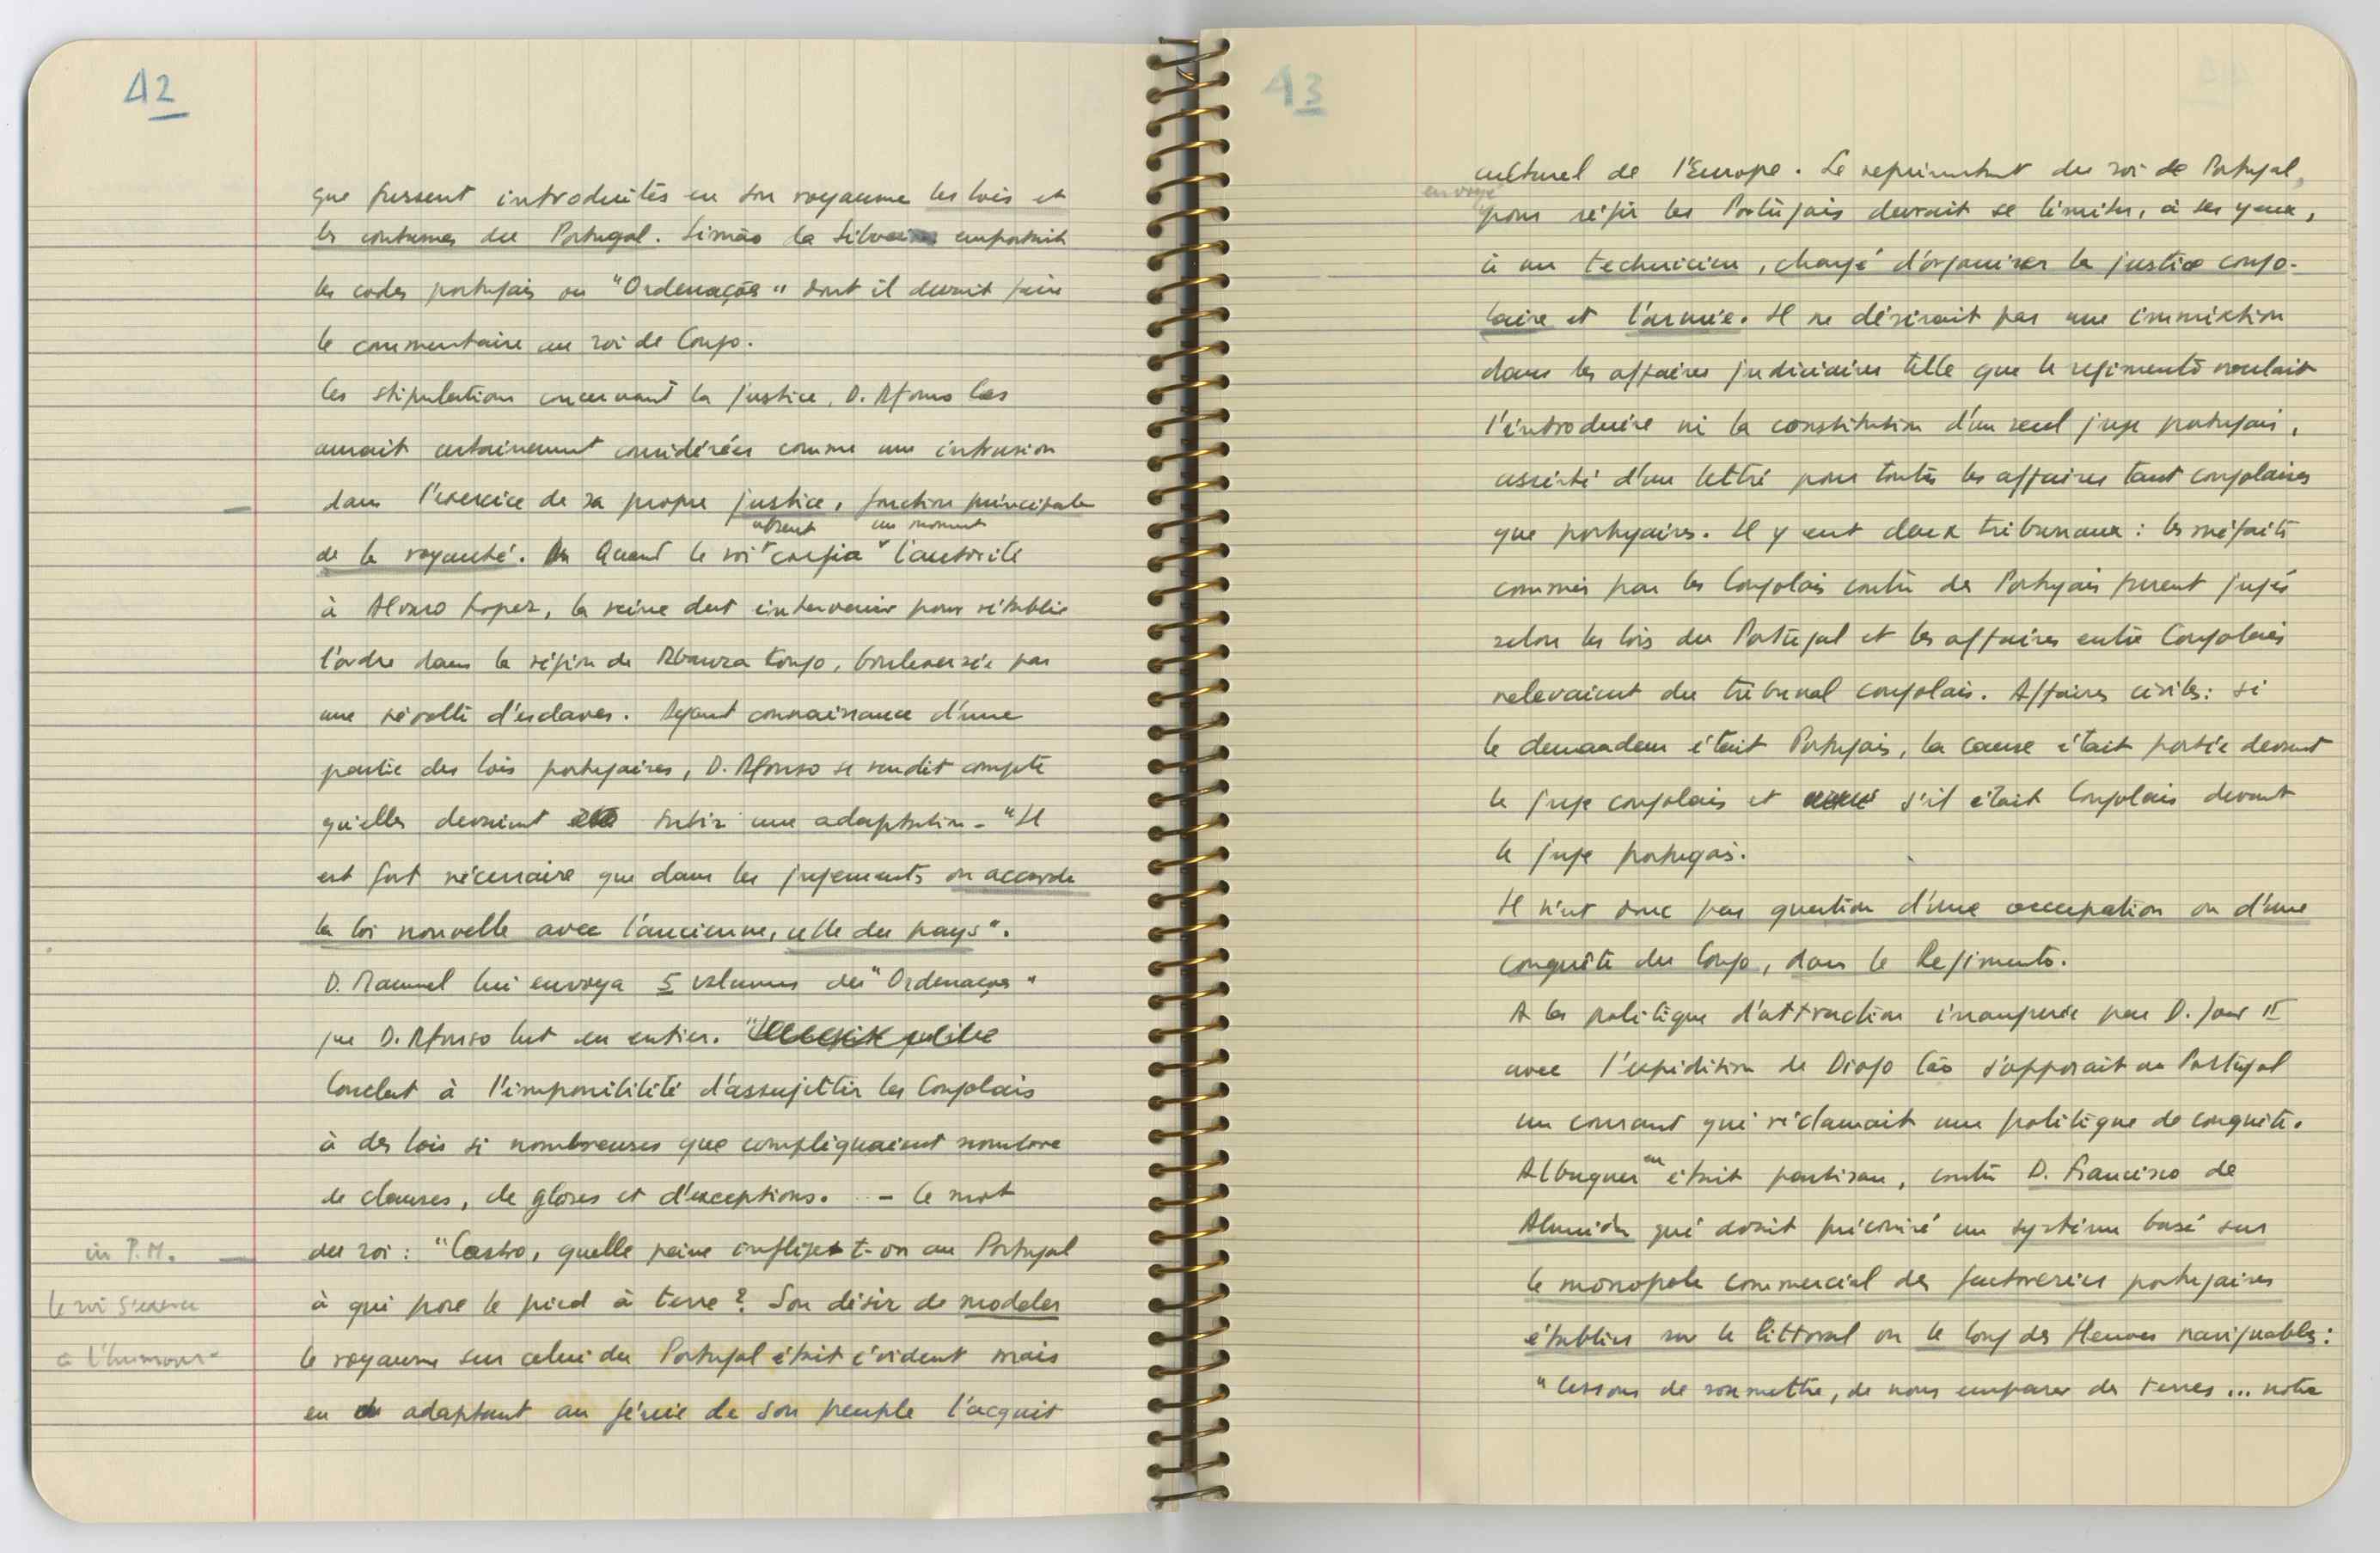 42
que fussent introduites en son royaume les lois et
les coutumes du Portugal. Simão da Silva emportait
les codes portugais ou "Ordenações" dont il devait faire
le commentaire au roi de Congo.
les stipulations concernant la justice, D. Afonso les
aurait certainement considérées comme une intrusion
dans l'exercice de sa propre justice, fonction principale
de la royauté. Quand le roi absent confia un moment l'autorité
à Alvaro Lopez, la reine dut intervenir pour rétablir
l'ordre dans la région de Mbanza Kongo, bouleversée par
une révolte d'esclaves. Ayant connaissance d'une
partie des lois portugaises, D. Afonso se rendit compte
qu'elles devraient subir une adaptation - "Il
est fort nécessaire que dans les jugements on accorde
la loi nouvelle avec l'ancienne, celle du pays".
D. Manuel lui envoya 5 volumes des "Ordenações"
que D. Afonso lut en entier.
Conclut à l'impossibilité d'assujettir les Congolais
à des lois si nombreuses que compliquaient nombre
de clauses, de gloses et d'exceptions. - le mot
in P.M. — du roi : "Castro, quelle peine inflige t-on au Portugal
le roi s'exerce à qui pose le pied à terre ? Son désir de modeler
à l'humour - le royaume sur celui du Portugal était évident mais
en adaptant au génie de son peuple l'acquit
43
culturel de l'Europe. Le représentant du roi de Portugal,
envoyé pour régir les Portugais devrait se limiter, à ses yeux,
à un technicien, chargé d'organiser la justice congo-
laise et l'armée. Il ne désirait pas une immixtion
dans les affaires judiciaires telle que le regimento voulait
l'introduire ni la constitution d'un seul juge portugais,
assisté d'un lettré pour toutes les affaires tant congolaises
que portugaises. Il y eut deux tribunaux : les méfaits
commis par les Congolais contre des Portugais furent jugés
selon les lois du Portugal et les affaires entre Congolais
relevaient du tribunal congolais. Affaires civiles : si
le demandeur était Portugais, la cause était portée devant
le juge congolais et s'il était Congolais devant
le juge portugais.
Il n'est donc pas question d'une occupation ou d'une
conquête du Congo, dans le Regimento.
A la politique d'attraction inaugurée par D. Joao II
avec l'expédition de Diogo Cão s'opposait au Portugal
un courant qui réclamait une politique de conquête.
Albuquer en était partisan, contre D. Francisco de
Almeida qui avait préconisé un système basé sur
le monopole commercial des factoreries portugaises
établies sur le littoral ou le long des fleuves navigables :
"cessons de soumettre, de nous emparer des terres... notre